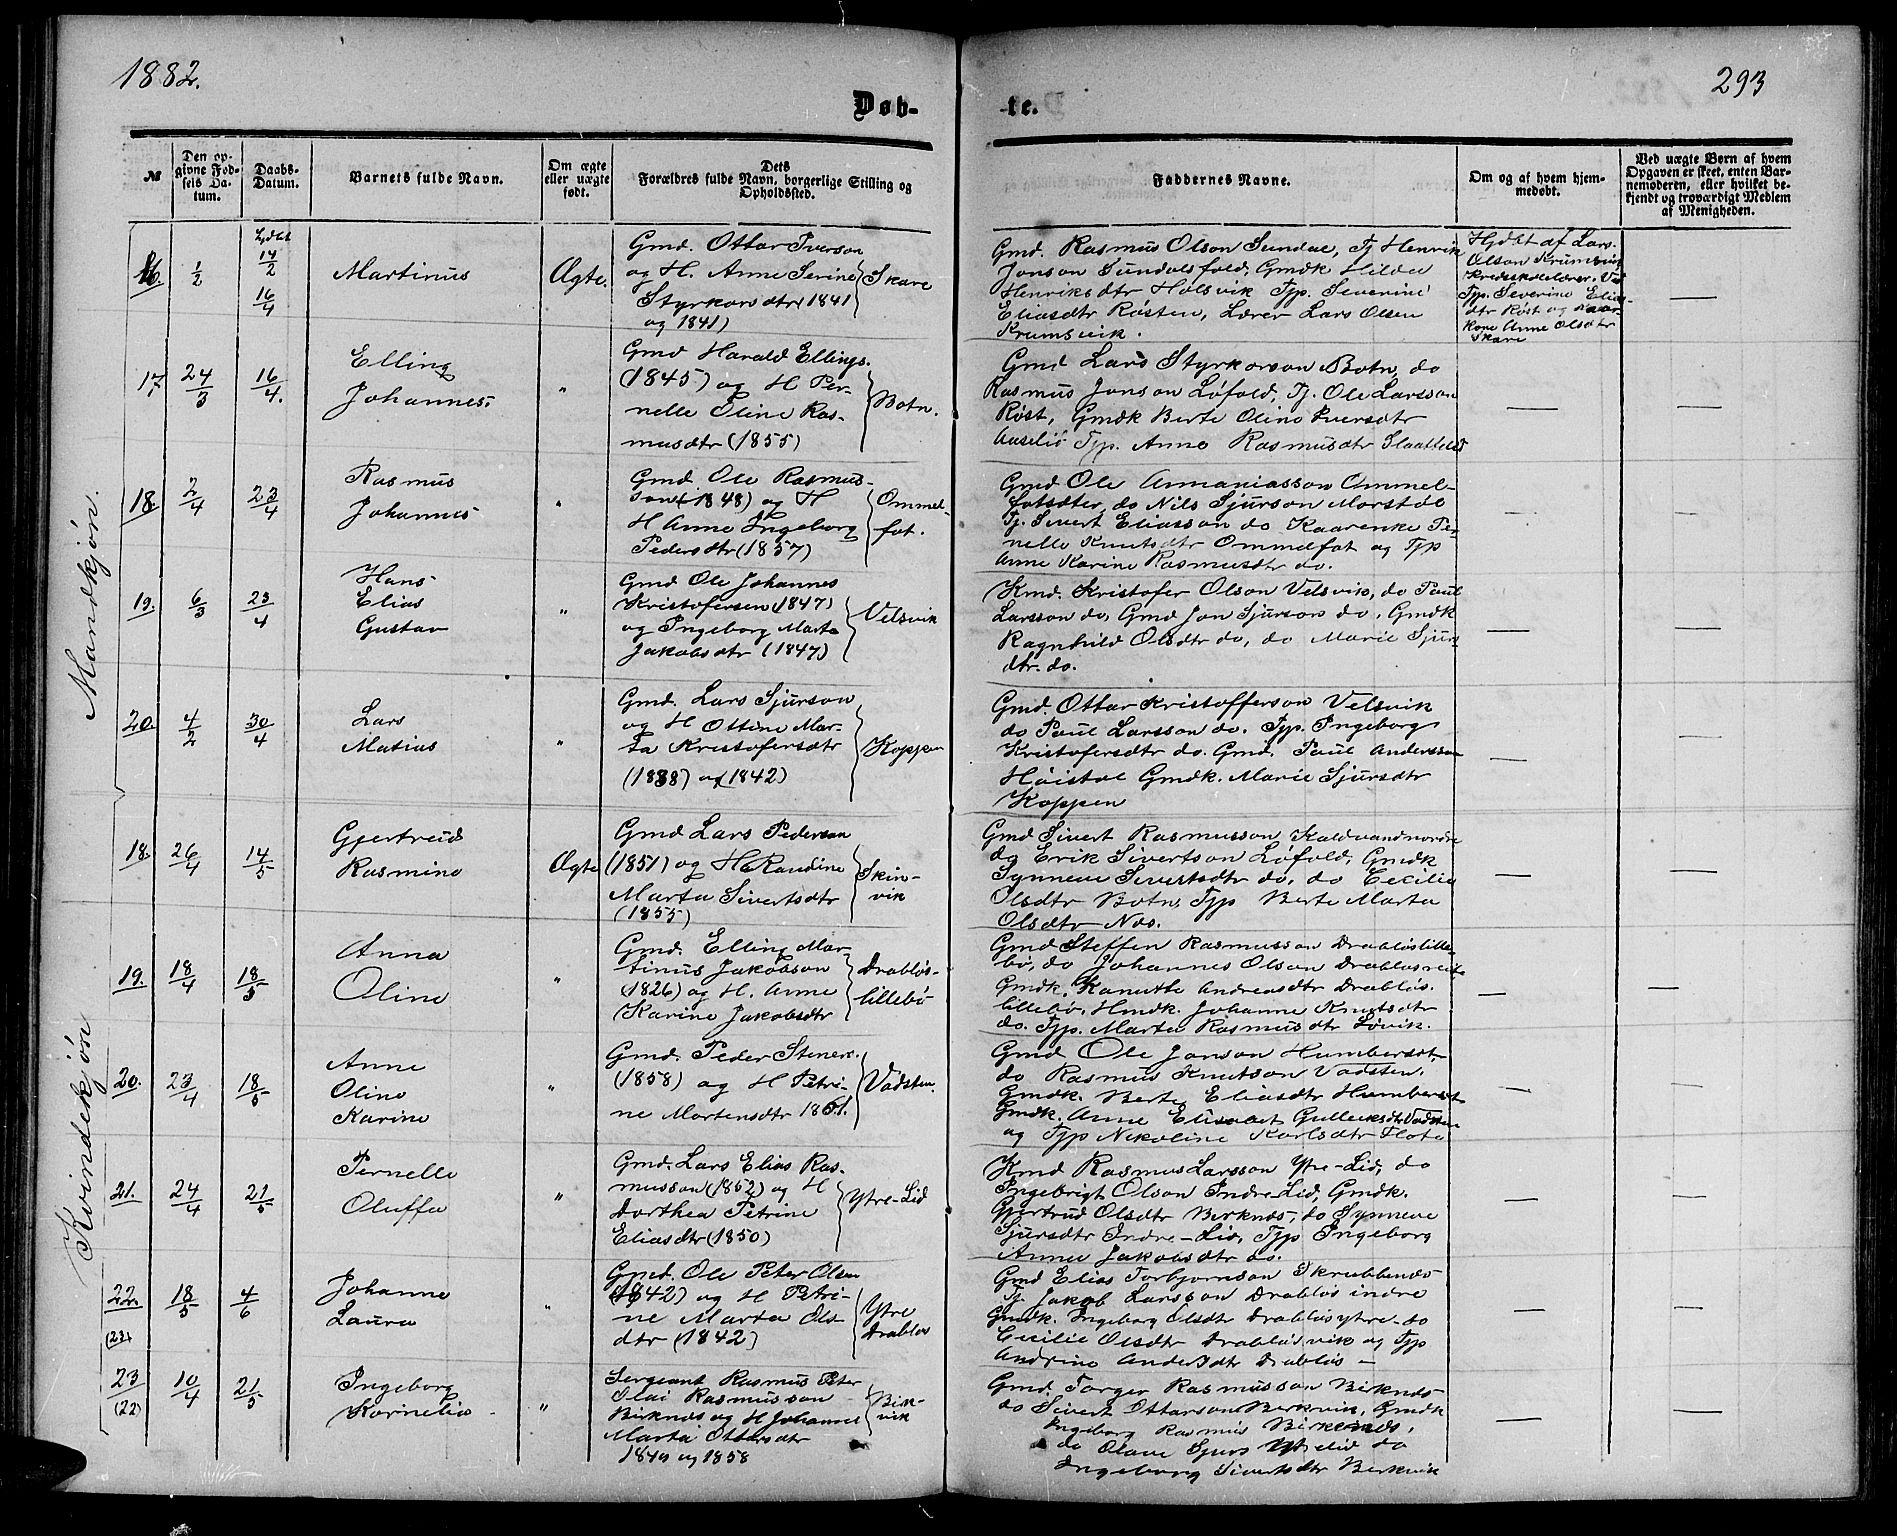 1882.
293
Døb-
te.
№
Den op-
givne Fød-
sels Da-
tum.
Daabs-
Datum.
Barnets fulde Navn.
Om ægte
eller uægte
født.
Dets
Forældres fulde Navn, borgerlige Stilling og
Opholdssted.
Faddernes Navne.
Om og af hvem hjem-
medøbt.
Ved uægte Børn af hvem
Opgaven er skeet, enten Bar-
nemoderen, eller hvilket be-
kjendt og troværdigt Medlem
af Menigheden.
Mandkjøn.
16.
1/2
14/2
16/4
Martinus
Ægte.
Gmd. Ottar Iverson
og H. Anne Serine
Styrkorsdtr (1841
og 1841)
Skare
Gmd. Rasmus Olson Sundal, Tj Henrik
Jonson Sundalsfold, Gmdk Hilda
Henriksdtr Holsvik Typ. Severine
Eliasdtr Røsten, Lærer Lars Olsen
Krumsvik.
Hjdbt af Lars
Olson Krumsvik
Kredsskolelærer. Vid
Typ. Severine Elias-
dtr Røst og
Kone Anne Olsdtr
Skare
17.
24/3
16/4.
Elling
Johannes.
"
Gmd Harald Ellings.
(1845) og H Per-
nelle Oline Ras-
musdtr (1855)
Botn.
Gmd Lars Styrkorson Botn, do
Rasmus Jonson Løfold, Tj. Ole Larsson
Røst, Gmdk Berte Oline Iversdtr
Aaseliø Typ. Anne Rasmusdtr Slaattelid
18.
2/4
23/4
Rasmus
Johannes
"
Gmd. Ole Rasmus-
son (1848) og H
H Anne Ingeborg
Pedersdtr (1857)
Ommel-
fot.
Gmd Ole Annaniasson Ommel-
fotsæter, do Nils Sjurson Morstøl
Tj. Sivert Eliasson do Kaarenke Pe-
nelle Knutsdtr Ommelfot og Typ
Anne Karine Rasmusdtr do.
19.
6/3
23/4
Hans
Elias
Gustav
"
Gmd Ole Johannes
Kristofersen (1847)
og Ingeborg Marta
Jakobsdtr (1847)
Velsvik
Kmd. Kristofer Olson Velsvik, do Paul
Larsson do, Gmd Jon Sjurson do, Gmdk
Ragnhild Olsdtr do, do Marie Sjurs-
dtr. do.
20.
4/2
30/4
Lars
Matias
"
Gmd. Lars Sjurson
og H Ottine Mar-
ta Kristofersdtr
(1838) og (1842)
Koppen
Gmd. Ottar Kristofferson Velsvik
do Paul Larsson do. Typ. Ingeborg
Kristofersdtr do. Gmd. Paul Andersson
Høistøl Gmdk. Marie Sjursdtr
Koppen
Kvindekjøn
18.
26/4
14/5
Gjertreid
Rasmine
Ægte
Gmd Lars Pederson
(1851) og H Randine
Marta Sivertsdtr
(1855)
Skin-
vik
Gmd Sivert Rasmusson Kaldvandnordre
do Erik Sivertson Løfold, Gmdk
Synneve Sivertsdtr do, do Cecilie
Olsdtr Botn, Typ Berte Marta
Olsdtr Nos.
19.
18/4
18/5
Anna
Oline
"
Gmd. Elling Mar-
tinus Jakobson
(1826) og H. Anne
Karine Jakobsdtr
Drabløs-
lillebø
Gmd Steffen Rasmusson Drabløslille-
bø, do Johannes Olson Drabløsreite
Gmdk. Kanutte Andreasdtr Drabløs-
lillebø, Hmdk. Johanne Knutsdtr
do. Typ. Marta Rasmusdtr Løvik.
20.
23/4
18/5
Anne
Oline
Karine
"
Gmd. Peder Stener.
(1858) og H Petri-
ne Martensdtr 1861.
Vadsten.
Gmd Ole Jonson Humberset,
do Rasmus Knutson Vadsten,
Gmdk. Berte Eliasdtr Humberset
Gmdk. Anne Elisabet Gulleiksdtr Vadsten
og Typ Nikoline Karlsdtr Flote
21.
24/4
21/5
Pernelle
Oluffa
"
Gmd. Lars Elias Ras-
musson (1852) og H
Dorthea Petrine
Eliasdtr (1850)
Ytre-Lid
Kmd Rasmus Larsson Ytre-Lid, do
Ingebrigt Olson Indre Lid, Gmdk.
Gjertrud Olsdtr Birknes, do Synneve
Sjursdtr Indre-Lid, Typ Ingeborg
Anne Jakobsdtr do.
22.
(23)
18/5
4/6
Johanne
Laura
"
Gmd. Ole Peter Olsen
(1842) og H Petri-
ne Marta Ols-
dtr (1842)
Ytre
Drabløs
Gmd Elias Torbjørnson Skrubbenes
Tj. Jakob Larsson Drabløs indre
Gmdk. Ingeborg Olsdtr Drabløsytre do
Cecilie Olsdtr Drabløsvik og Typ
Andrine Andersdtr Drabløs -
23
(22)
10/4
21/5
Ingeborg
Kornelia
"
Sergeant Rasmus Peter
Olai Rasmusson
Birknes og H Johanne
Marta Ottersdtr
1849 og 1858
Birk-
vik
Gmd. Torger Rasmusson Birknes
do Sivert Ottarson Birkvik, Gmdk
Ingeborg Rasmus Birkenes,
do Olave Sjurs Ytrelid do
Ingeborg Sivertsdtr Birkvik